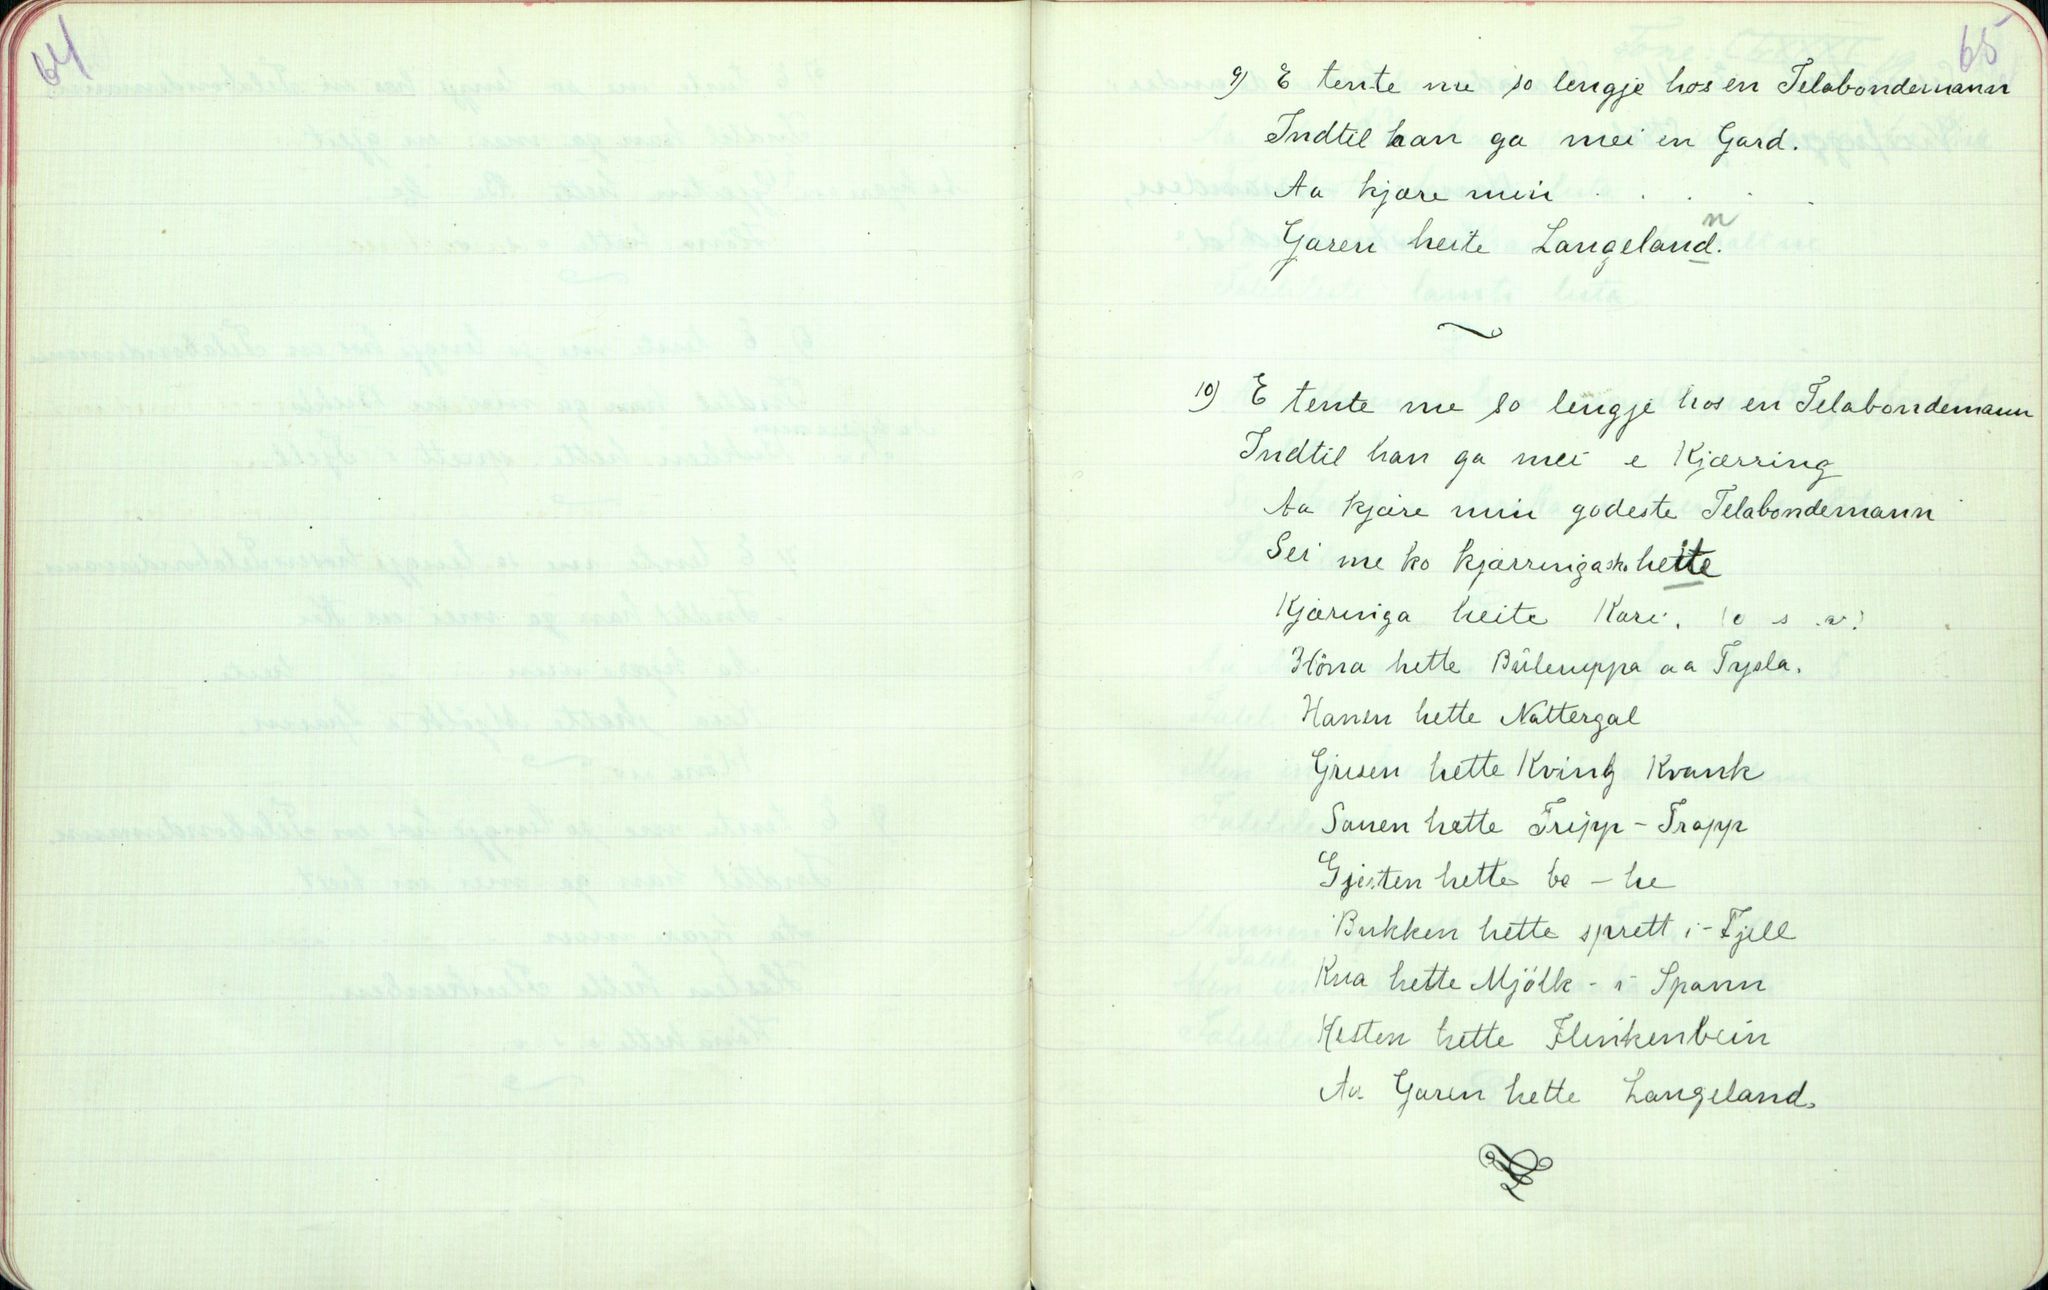 64
65
9) E tente me so lengje hos en Telabondemann
Indtil han ga mei en Gard.
Aa kjære min . . . .
Garen heite Langeland.
n
10) E tente me so lengje hos en Telabondemann
Indtil han ga mei e Kjærring
Aa kjære min godeste Telabondemann
Sei me ko kjærringa ska heite
Kjæringa heite Kari. (o s v)
Höna hette Bileruppa aa Tysla.
Hanen hette Nattergal
Grisen hette Kvink Kvank
Sauen hette Tripp - Trapp
Gjeiten hette be - he
Bukken hette sprett i - Fjell
Kua hette Mjölk - i Spann
Hesten hette Flinkenbein
Aa Garen hette Langeland.